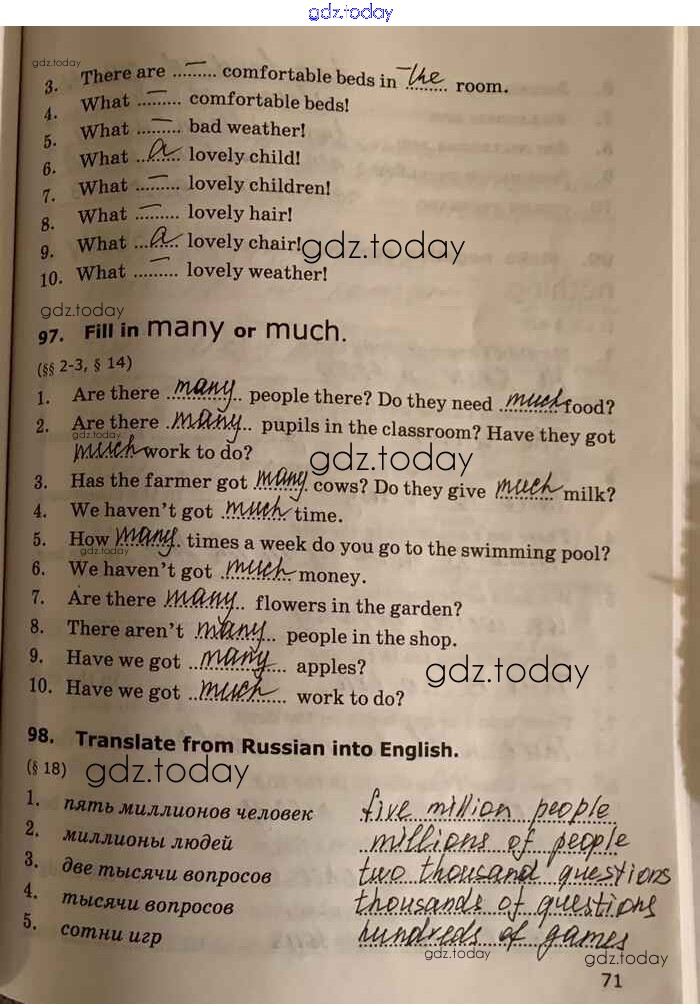 gdz.today
gdz.today
3. There are ...—... comfortable beds in the room.
4. What ...—... comfortable beds!
5. What ...—... bad weather!
6. What ...a... lovely child!
7. What ...—... lovely children!
8. What ...—... lovely hair!
9. What ...a... lovely chair! gdz.today
10. What ...—... lovely weather!
gdz.today
97. Fill in many or much.
(§§ 2-3, § 14)
1. Are there many people there? Do they need much food?
2. Are there many pupils in the classroom? Have they got
gdz.today
much work to do? gdz.today
3. Has the farmer got many cows? Do they give much milk?
4. We haven't got much time.
5. How many times a week do you go to the swimming pool?
gdz.today
6. We haven't got much money.
7. Are there many flowers in the garden?
8. There aren't many people in the shop.
9. Have we got many apples? gdz.today
10. Have we got much work to do?
98. Translate from Russian into English.
(§ 18) gdz.today
1. пять миллионов человек five million people
2. миллионы людей millions of people
3. две тысячи вопросов two thousand questions
4. тысячи вопросов thousands of questions
5. сотни игр hundreds of games
gdz.today gdz.today
71